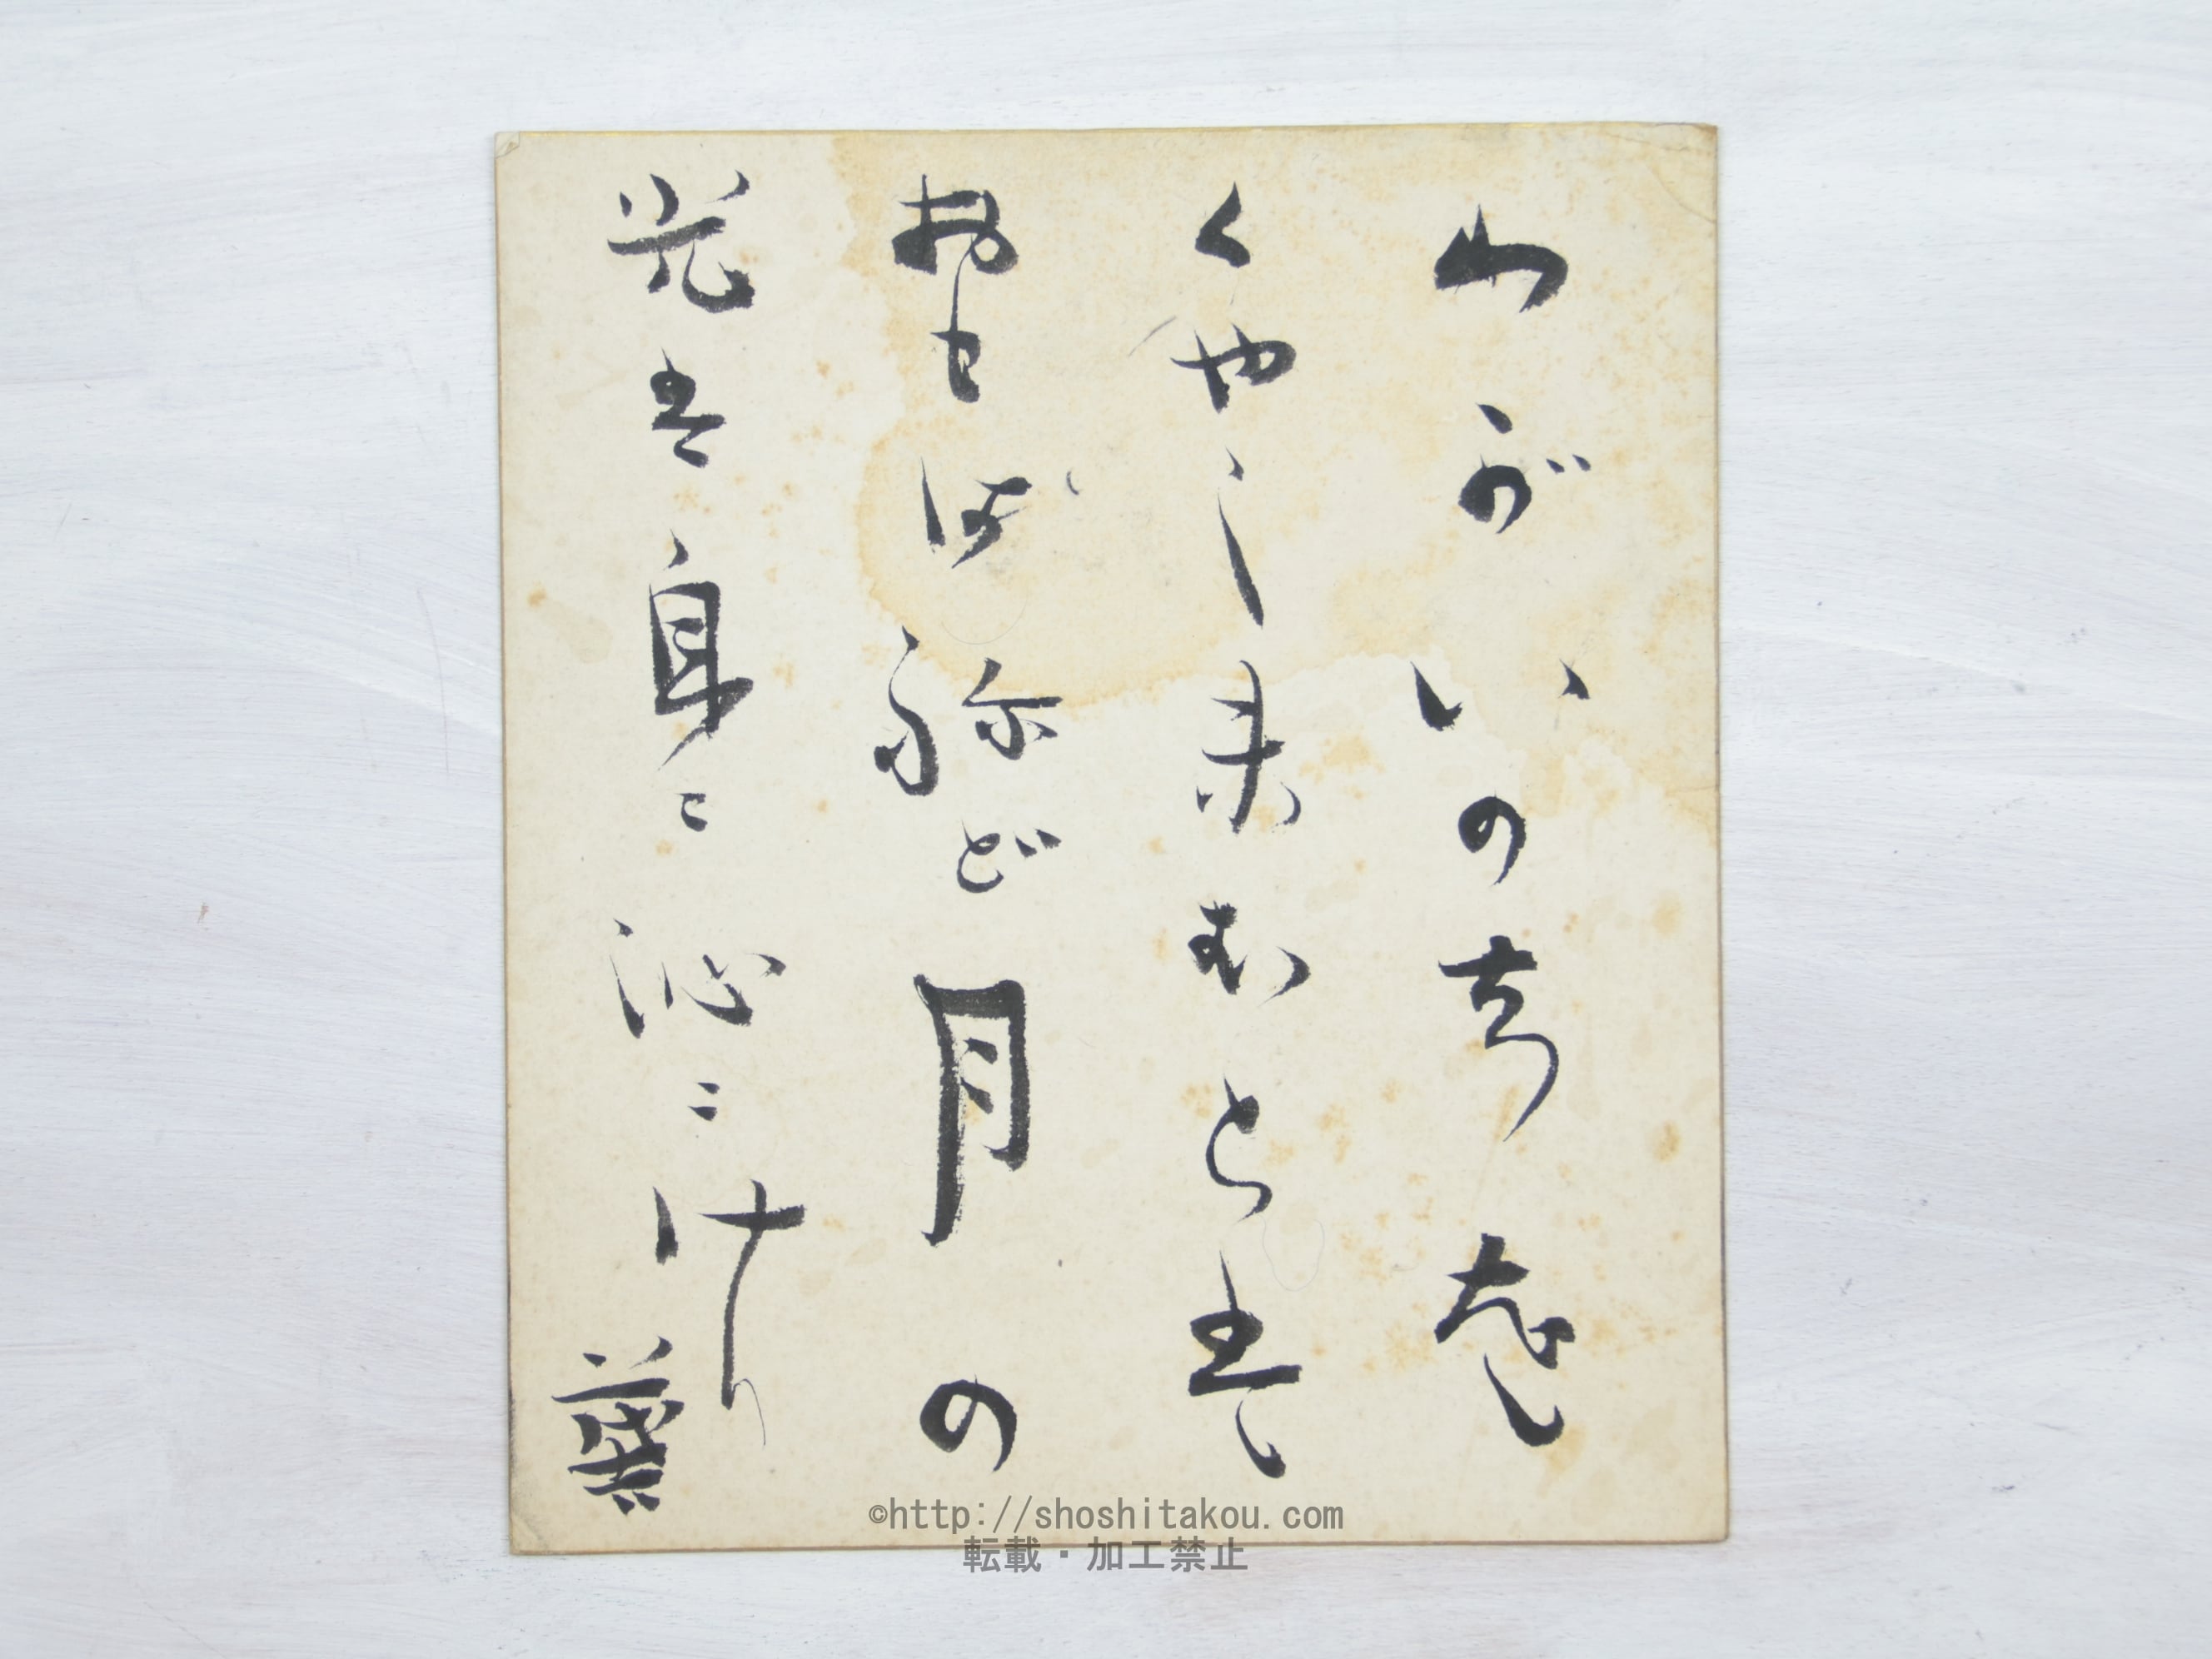 わがいのちを
くやしまむとは
おもはねど月の
光は身に沁みけり
©http://shoshitakou.com
転載・加工禁止